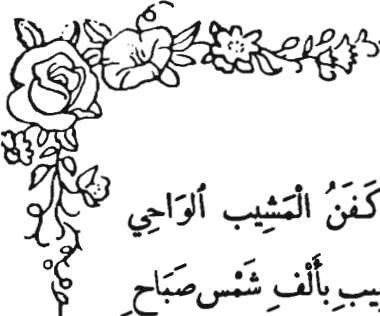 كَفَنُ الْمَشِيب ٱلوَاحِي
بِأَلْفِ شَمْس صَبَاحِ